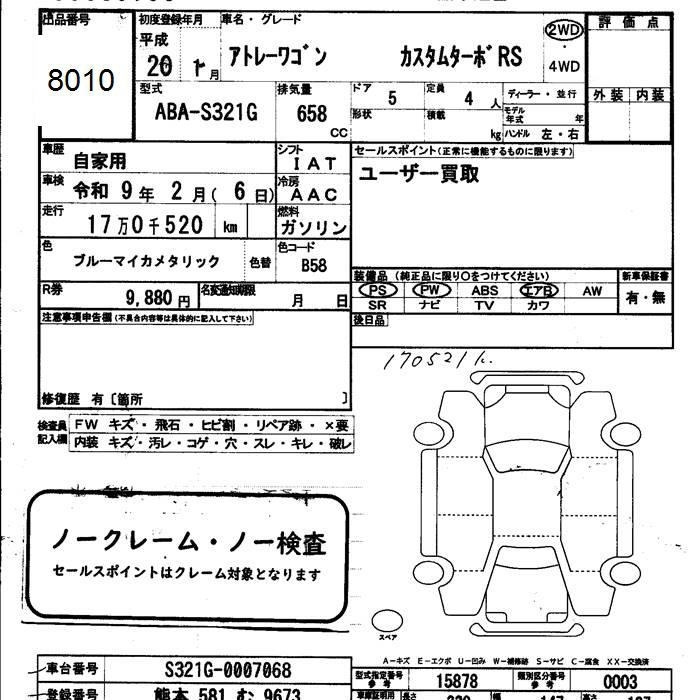 出品番号 初度登録年月 車名・グレード 評価点
8010 平成 20 年 1 月 アトレーワゴン カスタムターボRS 2WD・4WD
外装 内装
型式 排気量 ドア 5 定員 4 人 ディーラー・並行
ABA-S321G 658 cc 形状 積載 kg モデル年式 年
ハンドル 左・右
車歴 自家用 シフト I A T セールスポイント(正常に機能するものに限ります)
車検 令和 9 年 2 月( 6 日) 冷房 A A C ユーザー買取
走行 17万0千520 km 燃料 ガソリン
色 ブルーマイカメタリック 色替 色コード B58
装備品(純正品に限り○をつけてください) 新車保証書
R券 9,880 円 名変通知期限 月 日 PS PW ABS エアB AW 有・無
SR ナビ TV カワ
注意事項申告欄(不具合内容等は具体的に記入して下さい) 後日品
170521k.
修復歴 有〔箇所 〕
検査員記入欄 FW キズ・飛石・ヒビ割・リペア跡・×要
内装 キズ・汚レ・コゲ・穴・スレ・キレ・破レ
ノークレーム・ノー検査
セールスポイントはクレーム対象となります
スペア
A－キズ E－エクボ U－凹み W－補修跡 S－サビ C－腐食 XX－交換済
車台番号 S321G-0007068 型式指定番号 参考 15878 類別区分番号 参考 0003
登録番号 熊本 581 む 9673 車庫証明用 長さ 高さ 147